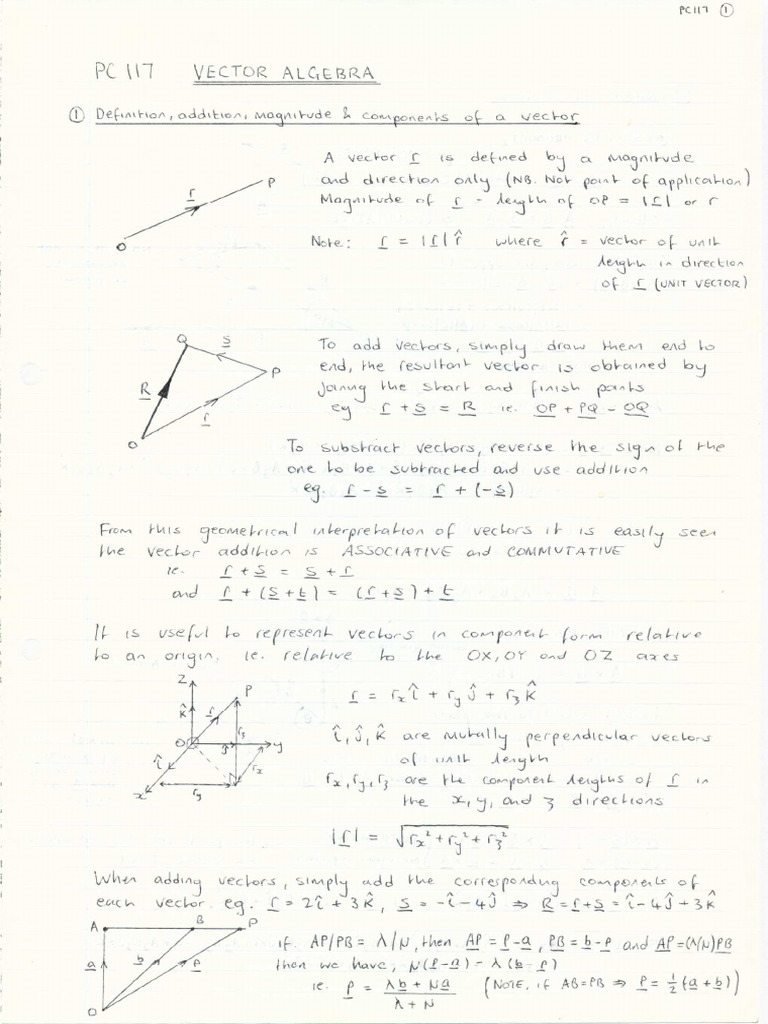 PC117 ①
PC 117 VECTOR ALGEBRA
① Definition, addition, magnitude & components of a vector
A vector r is defined by a magnitude
and direction only (NB. Not point of application)
Magnitude of r = length of OP = |r| or r
Note: r = |r| r̂ where r̂ = vector of unit
length in direction
of r (UNIT VECTOR)
O r P
To add vectors, simply draw them end to
end, the resultant vector is obtained by
joining the start and finish points
eg r + s = R ie. OP + PQ = OQ
Q s P R r O
To substract vectors, reverse the sign of the
one to be subtracted and use addition
eg. r - s = r + (-s)
From this geometrical interpretation of vectors it is easily seen
the vector addition is ASSOCIATIVE and COMMUTATIVE
ie. r + s = s + r
and r + (s + t) = (r + s) + t
It is useful to represent vectors in component form relative
to an origin. ie. relative to the OX, OY and OZ axes
r = rₓ î + r_y ĵ + r_z k̂
î, ĵ, k̂ are mutally perpendicular vectors
of unit length
rₓ, r_y, r_z are the component lengths of r in
the x, y, and z directions
|r| = √(rₓ² + r_y² + r_z²)
Z P k̂ r r_z O ĵ y î rₓ x r_y
When adding vectors, simply add the corresponding components of
each vector. eg. r = 2î + 3k̂, s = -î - 4ĵ ⇒ R = r + s = î - 4ĵ + 3k̂
A B P a b p O
if AP/PB = λ/N, then AP = p - a, PB = b - p and AP = (λ/N) PB
then we have, N(p - a) = λ(b - p)
ie. p = (λb + Na)/(λ + N) (NOTE, if AB = PB ⇒ p = ½(a + b))